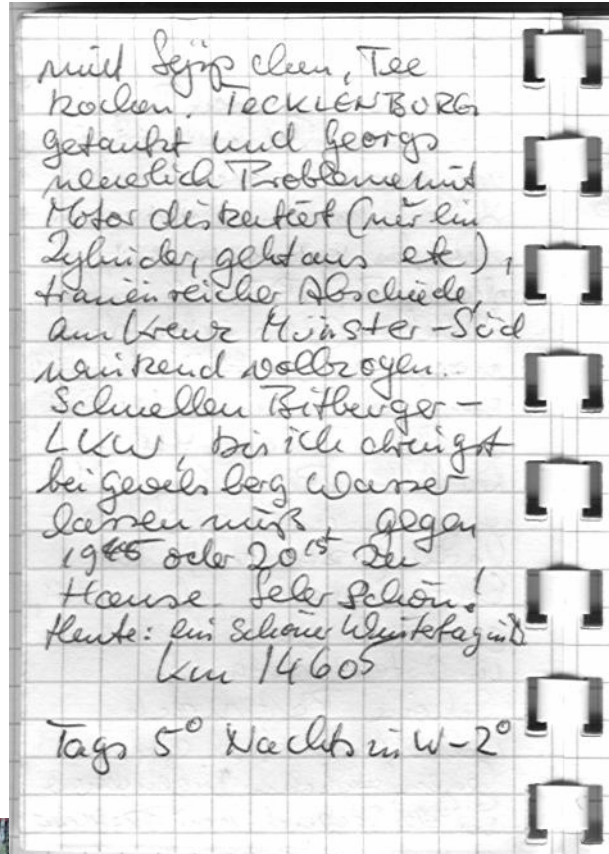 Tee
kochen. TECKLENBURG
getankt und Georgs
neuerlich Probleme mit
Motor diskutiert (nur ein
Zylinder, geht aus etc),
tränenreicher Abschiede,
am Kreuz Münster-Süd
winkend vollzogen.
Schnellen Bitburger-
LKW, bis ich dringst
bei Gevelsberg Wasser
lassen muß, gegen
20¹⁵ zu
Hause. Sehr schön!
Heute: ein schöner Wintertag
km 14605
Tags 5° Nachts in W -2°